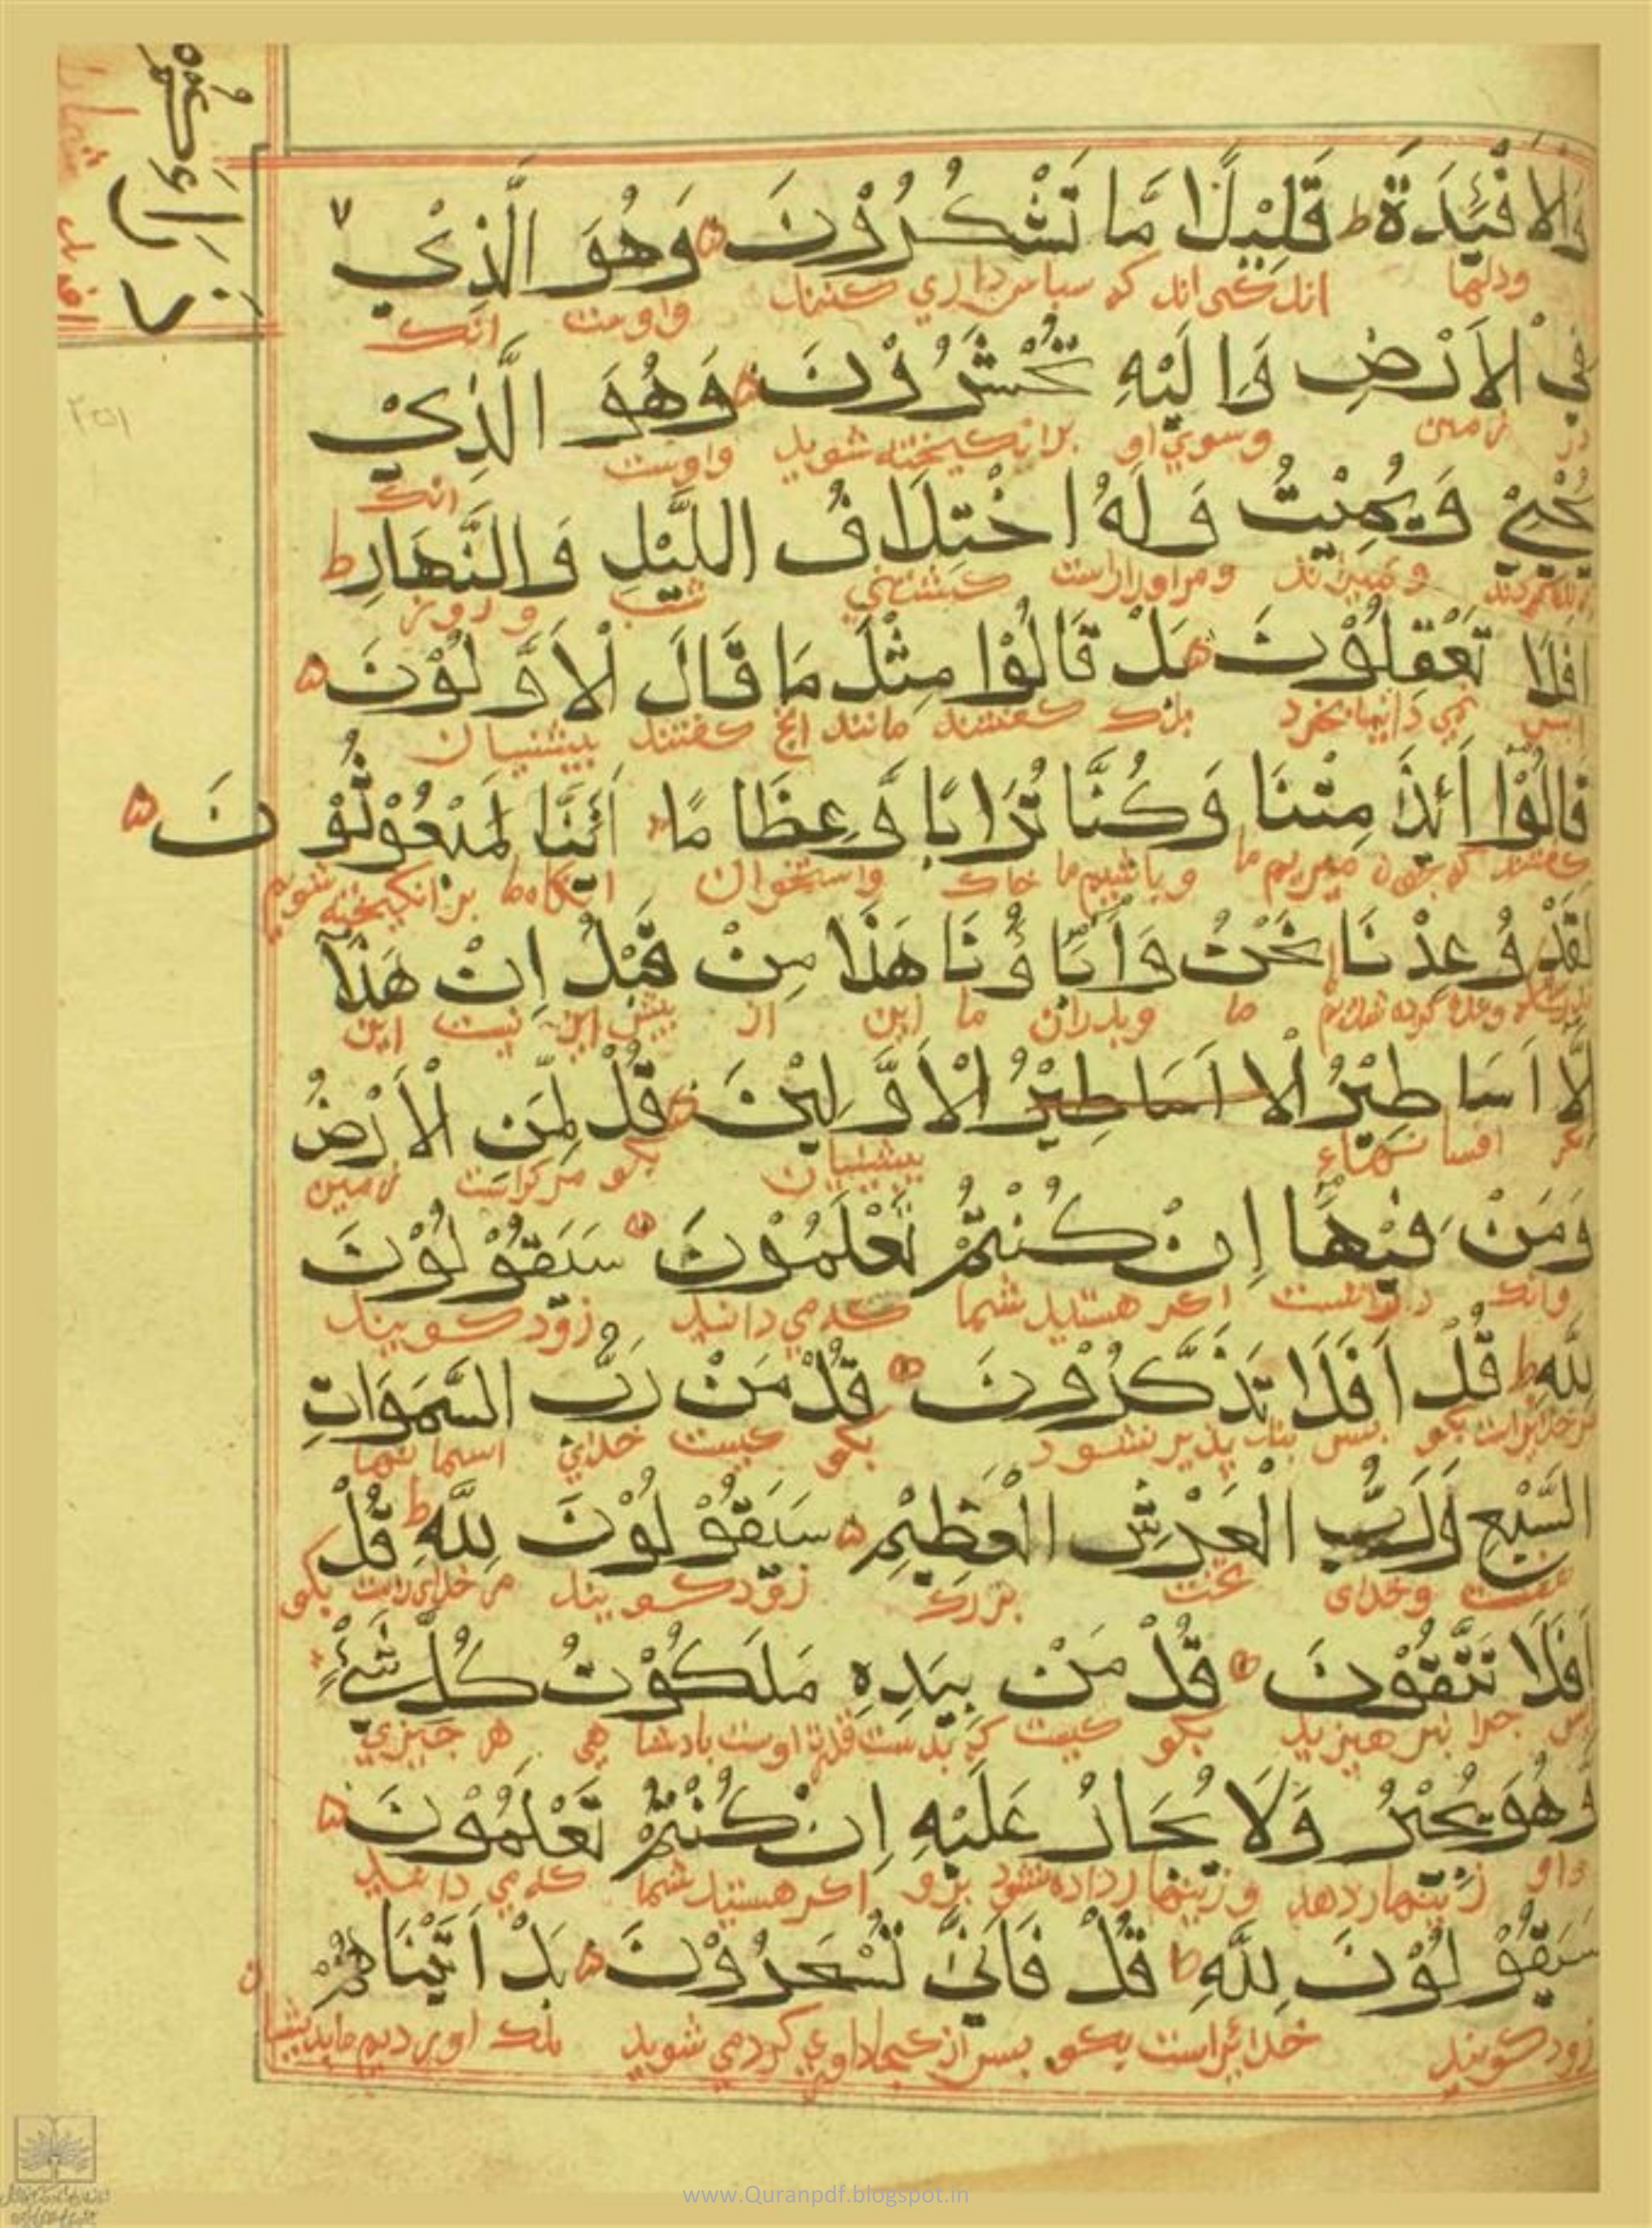 وَالاَفْئِدَةَ ط قَلِيْلًا مَّا تَشْكُرُوْنَ وَهُوَ الَّذِيْ ٧
ودلها اندكی اند كه سپاس داري كنند واوست انك
ذَرَاَكُمْ
فِي الاَرْضِ وَاِلَيْهِ تُحْشَرُوْنَ وَهُوَ الَّذِيْ
در زمين وسوي او برانكيخته شويد واوست انك
يُحْيِيْ وَيُمِيْتُ وَلَهُ اخْتِلَافُ اللَّيْلِ وَالنَّهَارِ ط
و بميراند ومر اوراراست شب و روز
اَفَلَا تَعْقِلُوْنَ بَلْ قَالُوْا مِثْلَ مَا قَالَ الْاَوَّلُوْنَ
بلك كفتند مانند انچ كفتند پيشينيان
قَالُوْا أَئِذَا مِتْنَا وَكُنَّا تُرَابًا وَّعِظَامًا أَئِنَّا لَمَبْعُوْثُوْنَ
كفتند كه چون ميريم ما وباشيم ما خاك واستخوان برانكيخته شويم
لَقَدْ وُعِدْنَا نَحْنُ وَاٰبَاؤُنَا هٰذَا مِنْ قَبْلُ اِنْ هٰذَآ
ما وپدران ما اين از پيش اين نيست اين
اِلَّا اَسَاطِيْرُ الا اَسَاطِيْرُ الْاَوَّلِيْنَ قُلْ لِّمَنِ الْاَرْضُ
مكر افسانهاء پيشينيان بكو مر كراست زمين
وَمَنْ فِيْهَا اِنْ كُنْتُمْ تَعْلَمُوْنَ سَيَقُوْلُوْنَ
وانك در انست اكر هستيد شما كه مي دانيد زود كويند
لِلّٰهِ ط قُلْ اَفَلَا تَذَكَّرُوْنَ قُلْ مَنْ رَّبُّ السَّمَوَاتِ
مرخدايراست بكو پس پند پذير نشود بكو كيست خداي اسمانها
السَّبْعِ وَرَبُّ الْعَرْشِ الْعَظِيْمِ سَيَقُوْلُوْنَ لِلّٰهِ ط قُلْ
هفت وخداى تخت بزرك زود كويند مر خدايراست بكو
اَفَلَا تَتَّقُوْنَ قُلْ مَنْ بِيَدِهِ مَلَكُوْتُ كُلِّ شَيْءٍ
پس چرا نپرهيزيد بكو كيست كه بدست قدرة اوست پادشاهي هر چيزي
وَّهُوَ يُجِيْرُ وَلَا يُجَارُ عَلَيْهِ اِنْ كُنْتُمْ تَعْلَمُوْنَ
واو زينهار دهد وزينهار داده نشود برو اكر هستيد شما كه مي دانيد
سَيَقُوْلُوْنَ لِلّٰهِ ط قُلْ فَاَنّٰى تُسْحَرُوْنَ بَلْ اَتَيْنَاهُمْ
زود كويند خدايراست بكو پس از كجا جادوي كرده مي شويد بلك اورديم مابديشان
٢٥١
www.Quranpdf.blogspot.in